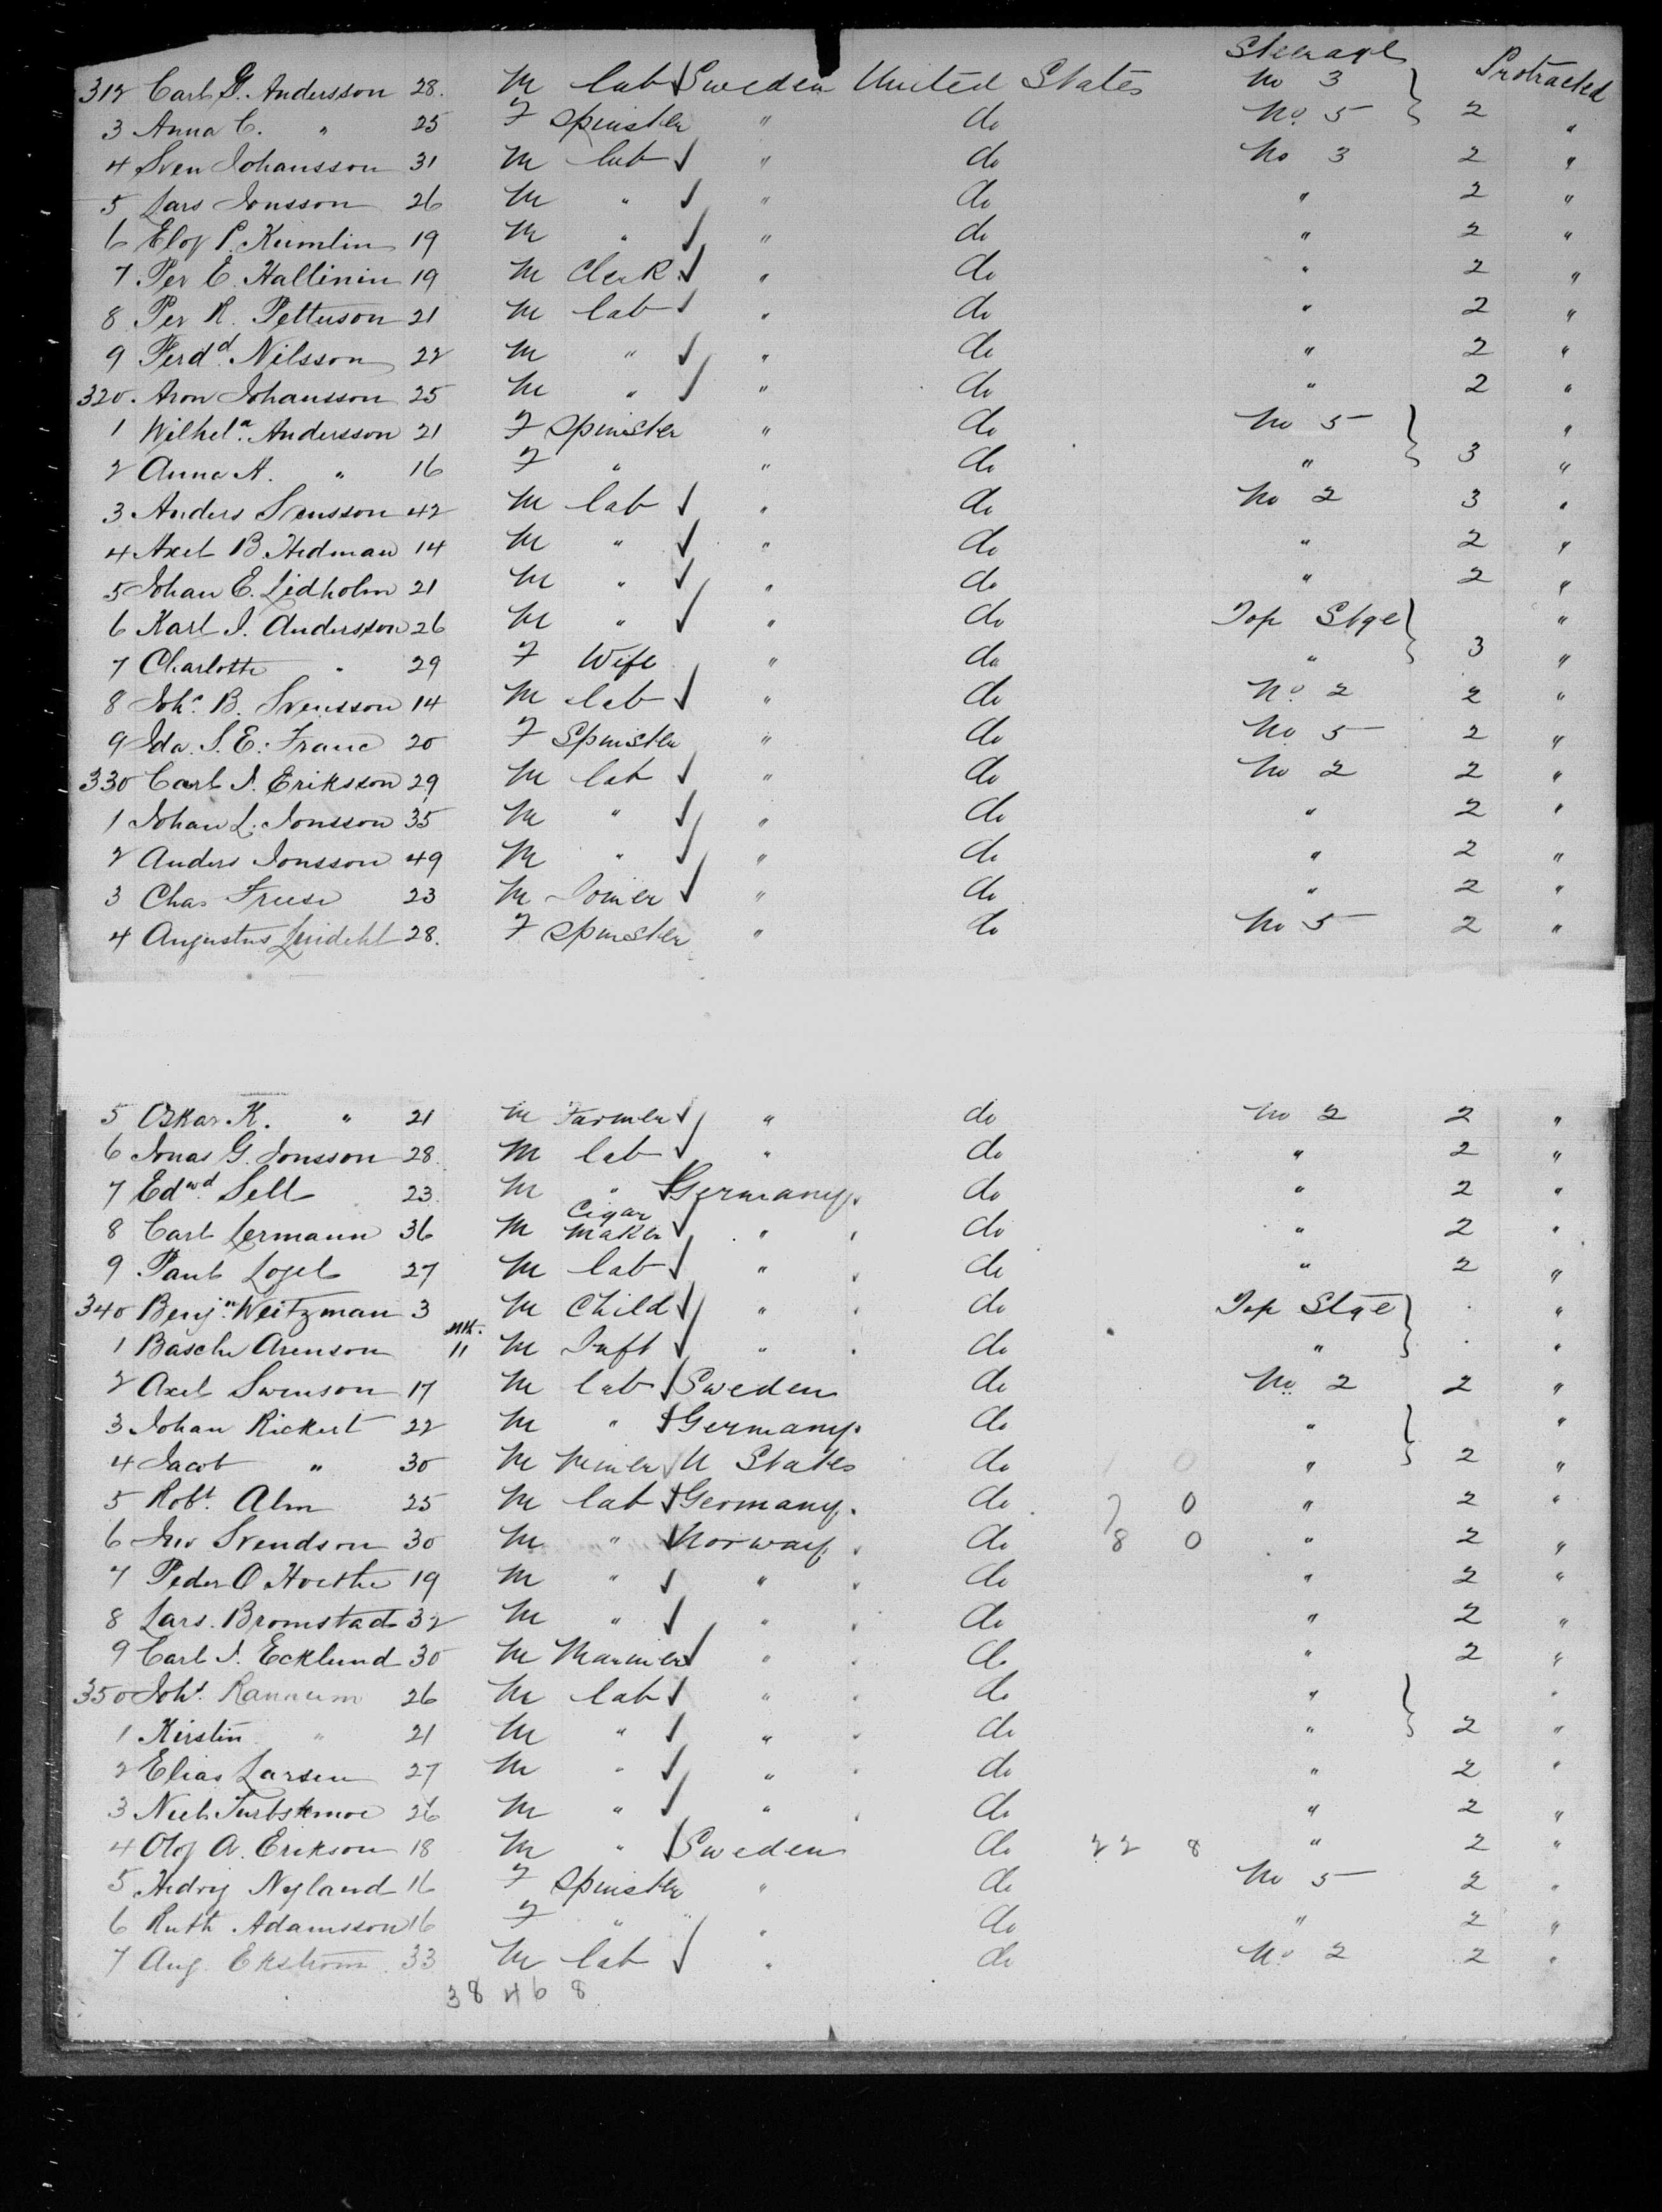 Steerage
312 Carl G. Andersson 28. M lab Sweden United States No 3 Protracted
3 Anna C. " 25 F Spinster " do No. 5 2 "
4 Sven Johansson 31 M lab " do No 3 2 "
5 Lars Jonsson 26 M " " do " 2 "
6 Elof P. Kumlin 19 M " " do " 2 "
7 Per E. Hallinin 19 M Clerk " do " 2 "
8 Per R. Petterson 21 M lab " do " 2 "
9 Ferdd. Nilsson 22 M " " do " 2 "
320. Aron Johansson 25 M " " do " 2 "
1 Wilhela. Andersson 21 F Spinster " do No 5 "
2 Anna A. " 16 F " " do " 3 "
3 Anders Svensson 42 M lab " do No 2 3 "
4 Axel B. Hedman 14 M " " do " 2 "
5 Johan E. Lidholm 21 M " " do " 2 "
6 Karl J. Andersson 26 M " " do Top Stge "
7 Charlotte " 29 F Wife " do " 3 "
8 Johs. B. Svensson 14 M lab " do No. 2 2 "
9 Ida. S. E. Franc 20 F Spinster " do No 5 2 "
330 Carl J. Eriksson 29 M lab " do No 2 2 "
1 Johan L. Jonsson 35 M " " do " 2 "
2 Anders Jonsson 49 M " " do " 2 "
3 Chas Freese 23 M Joiner " do " 2 "
4 Augustus 28. F Spinster " do No 5 2 "
5 Oskar K. " 21 M Farmer " do No 2 2 "
6 Jonas G. Jonsson 28 M lab " do " 2 "
7 Edwd. Sell 23 M " Germany. do " 2 "
8 Carl Lermann 36 M Cigar Maker " do " 2 "
9 Paul Logel 27 M lab " do " 2 "
340 Benjn. Weitzman 3 M Child " do Top Stge "
1 Basche Arenson Mth. 11 M Inft " do " "
2 Axel Swenson 17 M lab Sweden do No. 2 2 "
3 Johan Rickert 22 M " Germany do " "
4 Jacob " 30 M Miner U States do " 2 "
5 Robt. Alm 25 M lab Germany. do 7 0 " 2 "
6 Jno Svendson 30 M " Norway do 8 0 " 2 "
7 Peder O Hoethe 19 M " " do " 2 "
8 Lars. Bromstad 32 M " " do " 2 "
9 Carl J. Ecklund 30 M Mariner " do " 2 "
350 Johs. Rannum 26 M lab " do " "
1 Kirstin " 21 M " " do " 2 "
2 Elias Larsen 27 M " " do " 2 "
3 26 M " " do " 2 "
4 Olof A. Erikson 18 M " Sweden do 22 8 " 2 "
5 Hedvig Nyland 16 F Spinster " do No 5 2 "
6 Ruth Adamsson 16 F " " do " 2 "
7 Aug. Ekstrom 33 M lab " do No. 2 2 "
38 46 8